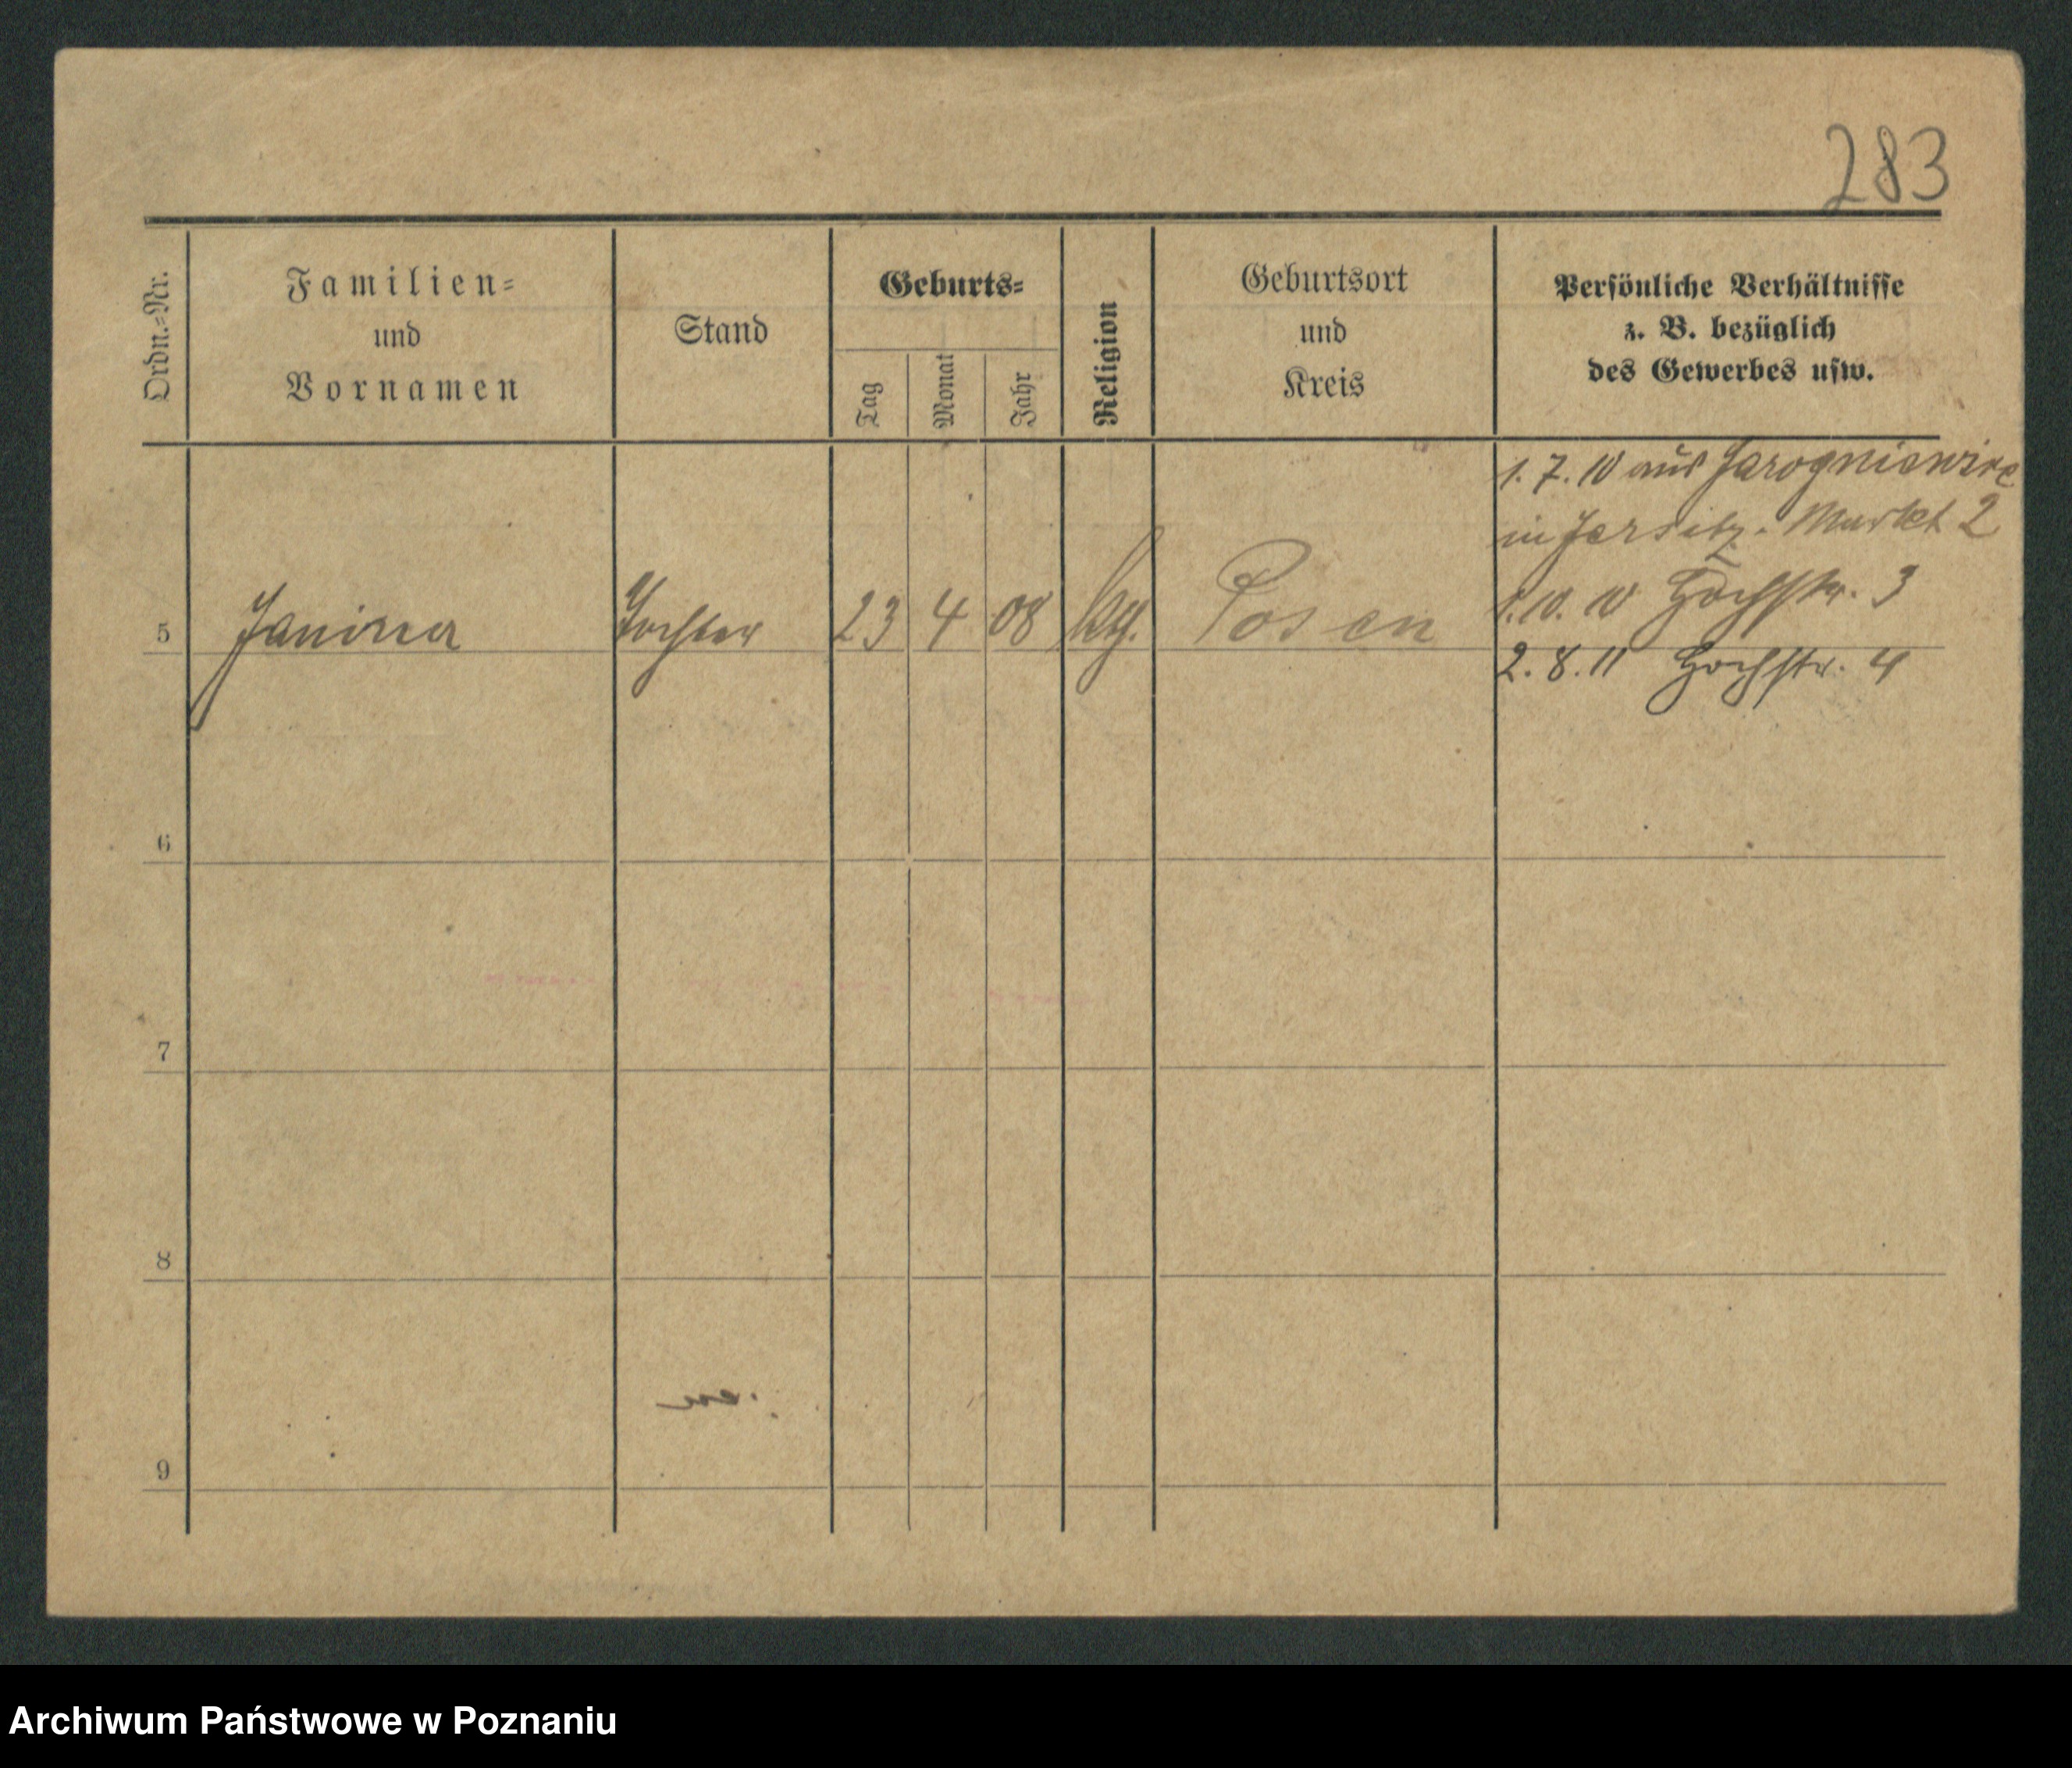 283
Ordn.-Nr.
Familien-
und
Vornamen
Stand
Geburts-
Tag
Monat
Jahr
Religion
Geburtsort
und
Kreis
Persönliche Verhältnisse
z. B. bezüglich
des Gewerbes usw.
1. 7. 10 aus Jarogniewice
in Jersitz. Markt 2
1. 10. 10 Hochstr. 3
5 Janina Tochter 23 4 08 Posen
2. 8. 11 Hochstr. 4
6
7
8
9
Archiwum Państwowe w Poznaniu